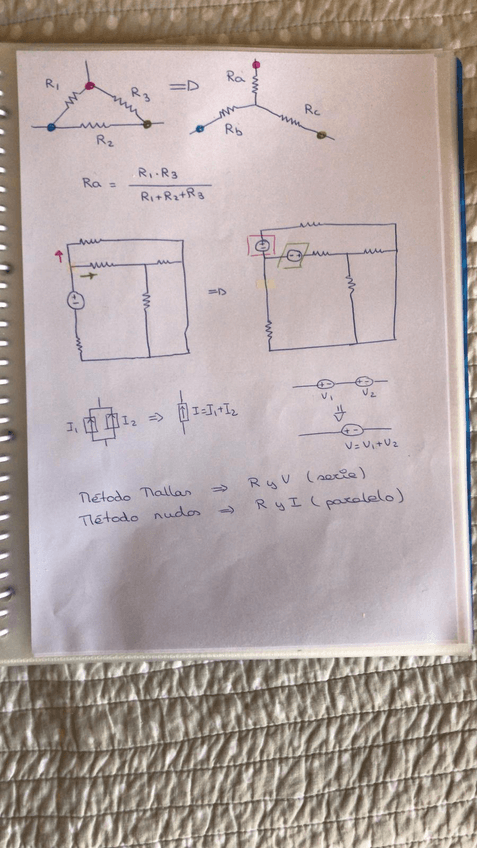 R1 R3 ⇒ Ra Rc
R2 Rb
Ra = R1·R3 / R1+R2+R3
⇒
I1 I2 ⇒ I=I1+I2
V1 V2
⇓
V=V1+V2
Método Mallas ⇒ R y V (serie)
Método nudos ⇒ R y I (paralelo)